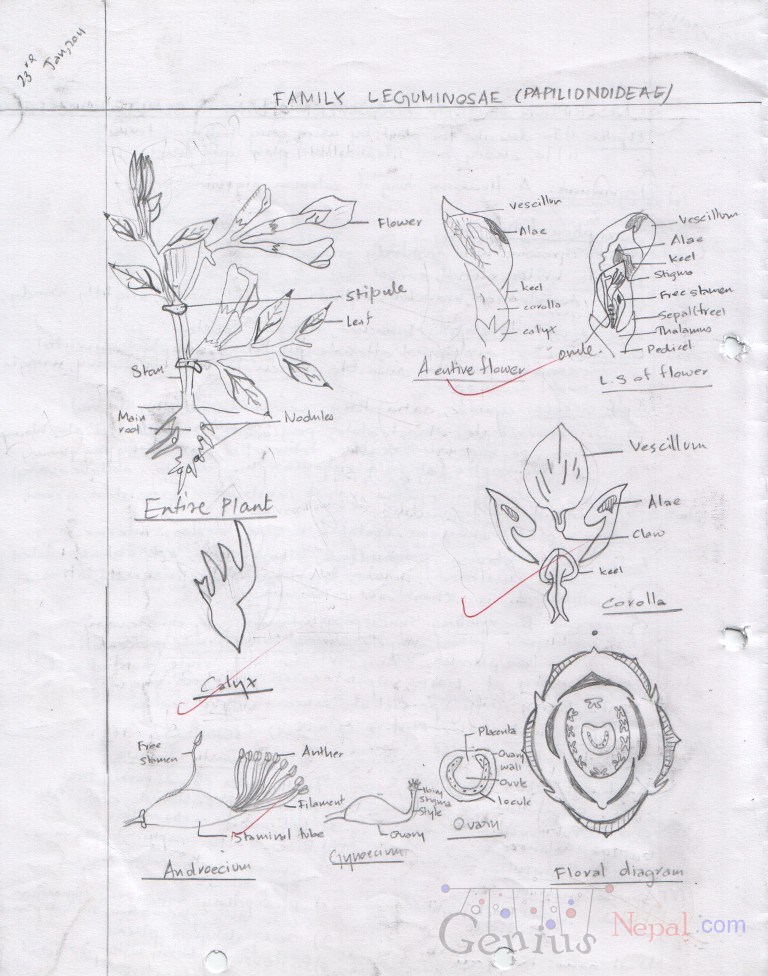 23rd Jan, 2011
FAMILY LEGUMINOSAE (PAPILIONOIDEAE)
Flower
stipule
Leaf
Stem
Main root
Nodules
Entire Plant
vescillum
Alae
keel
corolla
calyx
A entire flower
Vescillum
Alae
keel
Stigma
Free stamen
Sepal(free)
Thalamus
Pedicel
ovule
L.S of flower
Vescillum
Alae
Claw
keel
Corolla
Calyx
Free stamen
Anther
Filament
Staminal tube
Androecium
Hairy stigma
Style
Ovary
Gynoecium
Placenta
Ovary wall
Ovule
locule
Ovary
Floral diagram
Genius Nepal.com